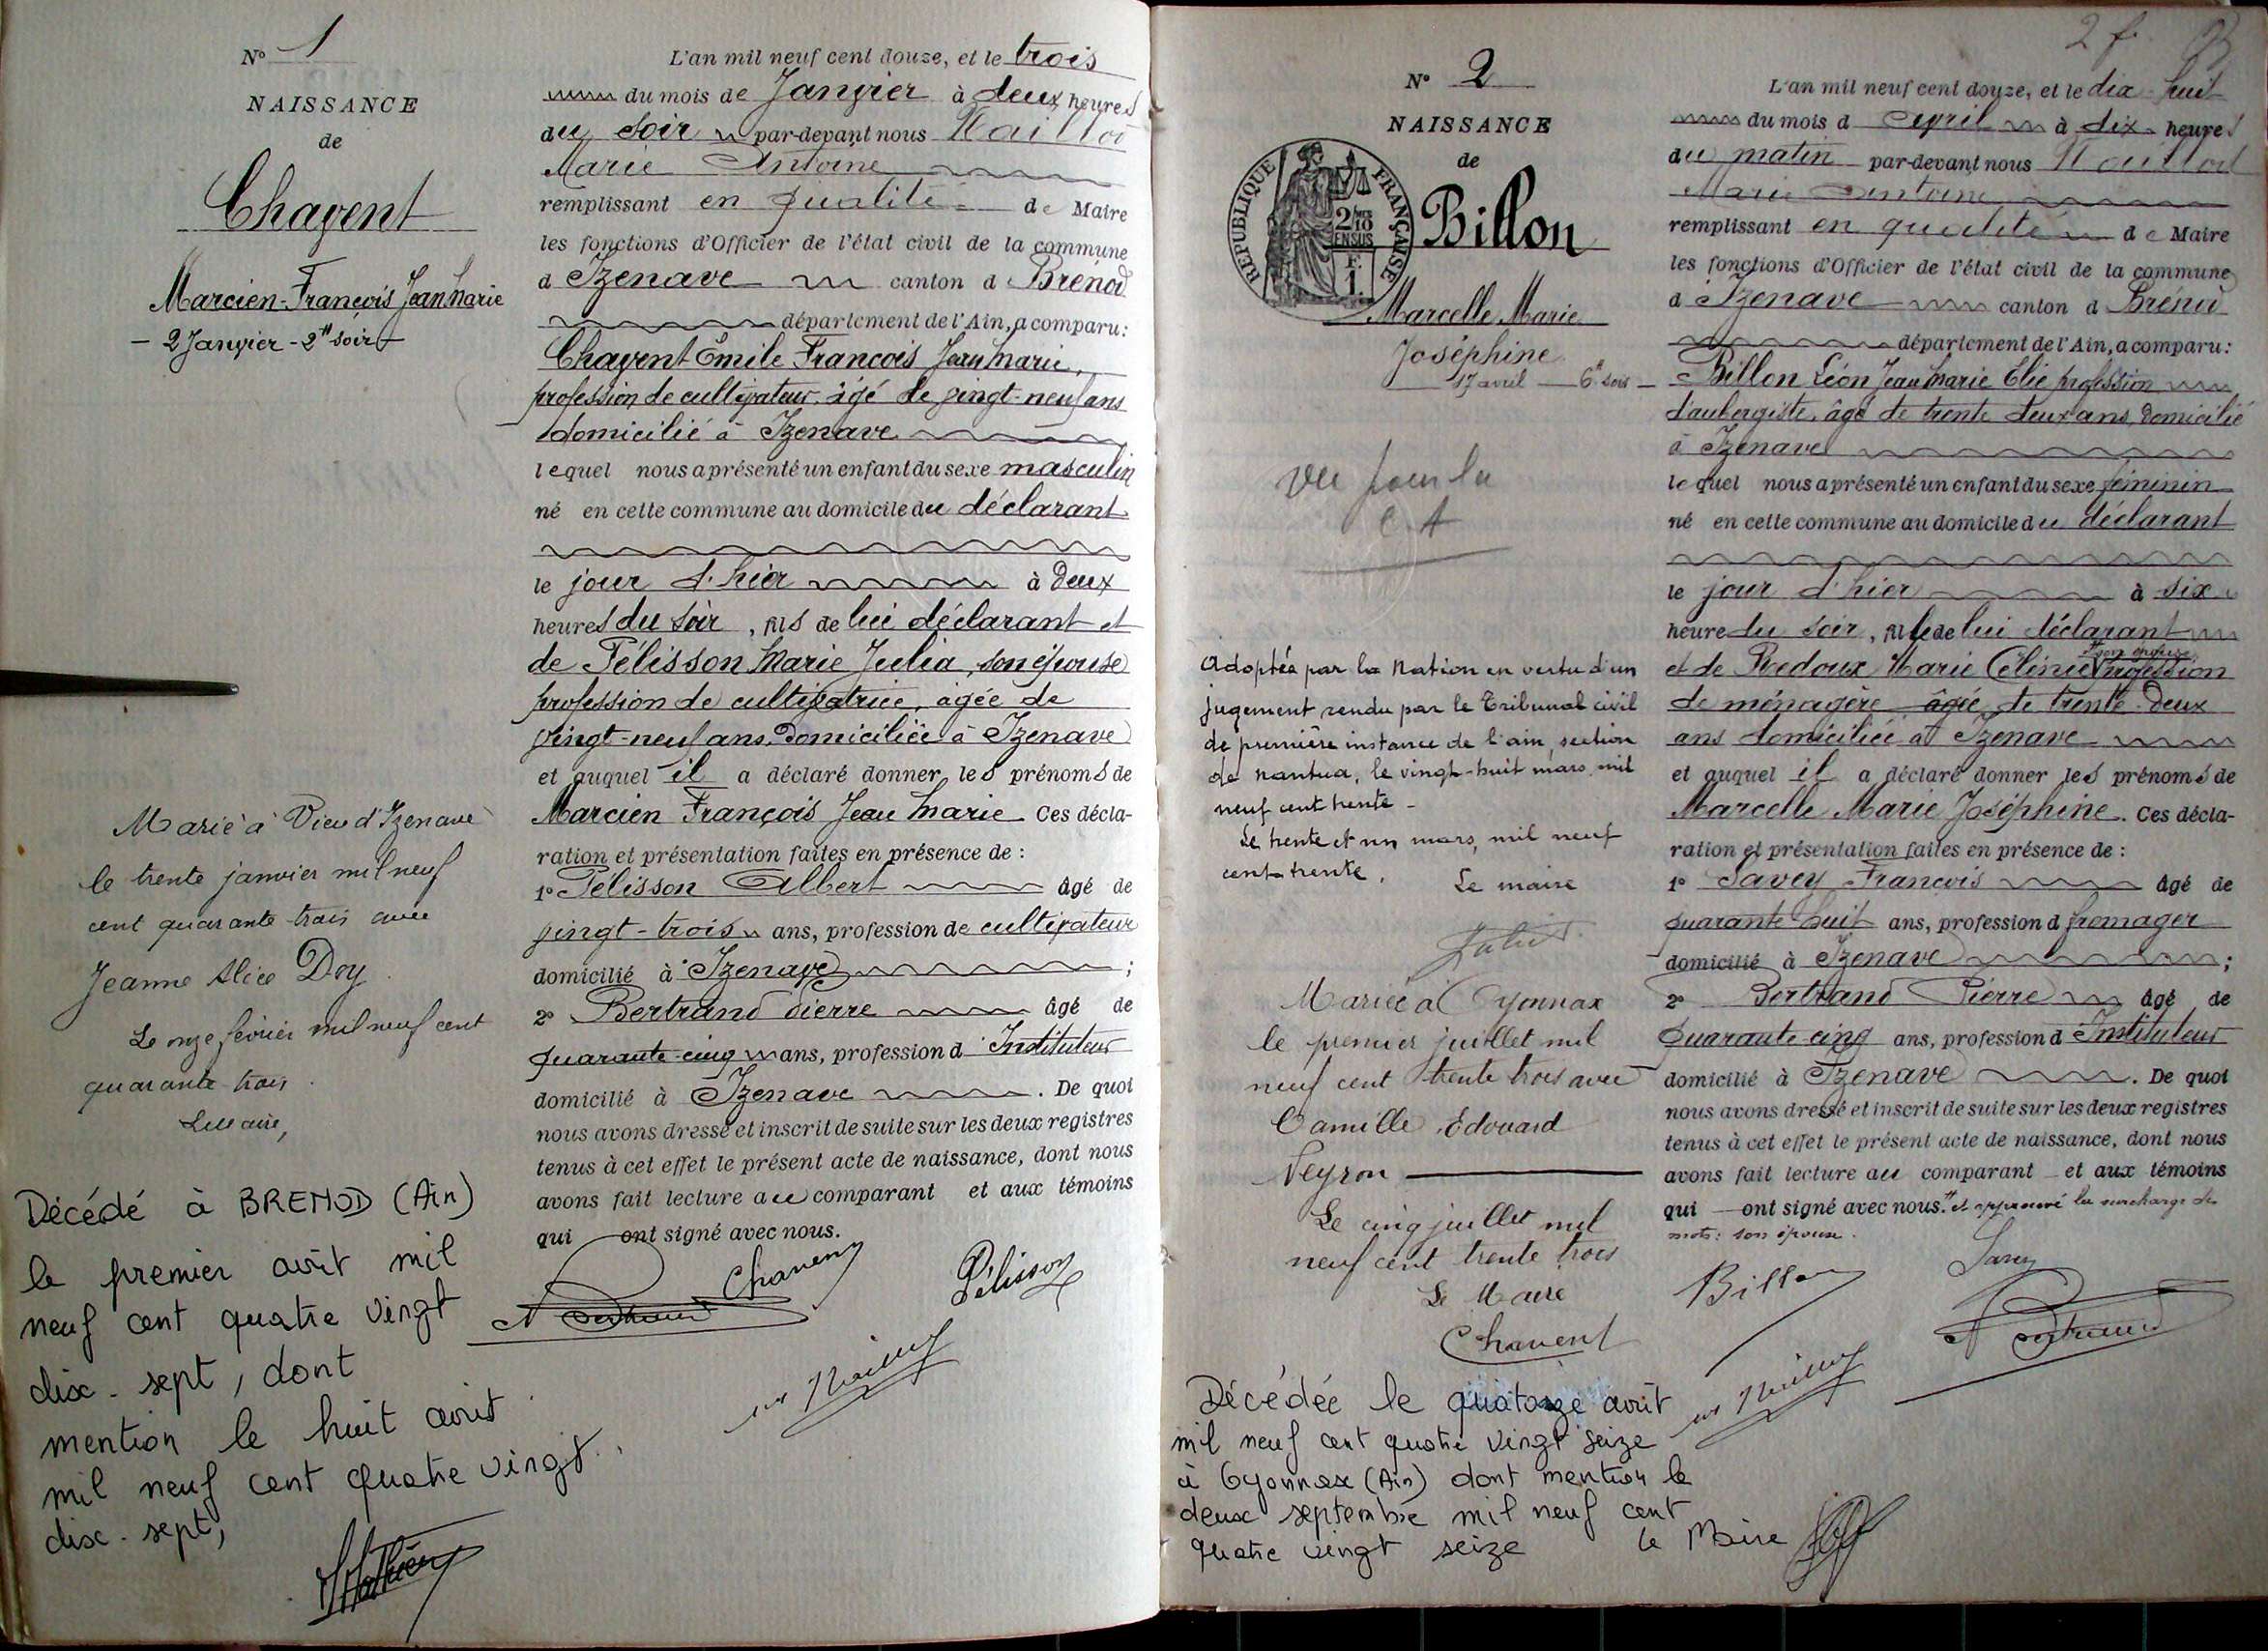 N° 1
NAISSANCE
de
Chavent
Marcien-François Jean Marie
- 2 Janvier - 2 H soir -
Marié à Vieu d'Izenave
le trente janvier mil neuf
cent quarante trois avec
Jeanne Alice Doy
Le onze février mil neuf cent
quarante trois.
Le Maire,
Décédé à BRENOD (Ain)
le premier août mil
neuf cent quatre vingt
dix-sept, dont
mention le huit août
mil neuf cent quatre vingt
dix-sept,
L'an mil neuf cent douze, et le trois
du mois de Janvier à deux heures
du soir par-devant nous Maillot
Marie Antoine
remplissant en qualité de Maire
les fonctions d'Officier de l'état civil de la commune
d Izenave canton d Brénod
département de l'Ain, a comparu:
Chavent Émile François Jean Marie,
profession de cultivateur, âgé de vingt-neuf ans
domicilié à Izenave
lequel nous a présenté un enfant du sexe masculin
né en cette commune au domicile du déclarant
le jour d'hier à deux
heures du soir, fils de lui déclarant et
de Pélisson Marie Julia, son épouse
profession de cultivatrice, âgée de
vingt-neuf ans, domiciliée à Izenave
et auquel il a déclaré donner les prénoms de
Marcien François Jean Marie Ces décla-
ration et présentation faites en présence de :
1° Pélisson Albert âgé de
vingt-trois ans, profession de cultivateur
domicilié à Izenave ;
2° Bertrand Pierre âgé de
quarante-cinq ans, profession d Instituteur
domicilié à Izenave . De quoi
nous avons dressé et inscrit de suite sur les deux registres
tenus à cet effet le présent acte de naissance, dont nous
avons fait lecture au comparant et aux témoins
qui ont signé avec nous.
Chavent
Pélisson
Bertrand
Maillot
2 f.
N° 2
NAISSANCE
de
RÉPUBLIQUE FRANÇAISE
2/10
EN SUS
F.
1.
Billon
Marcelle Marie
Joséphine
17 avril - 6 H soir -
Vu pour la
Adoptée par la Nation en vertu d'un
jugement rendu par le Tribunal civil
de première instance de l'ain, section
de nantua, le vingt-huit mars, mil
neuf cent trente -
Le trente et un mars, mil neuf
cent trente,
Le maire
Mariée à Oyonnax
le premier juillet mil
neuf cent trente trois avec
Camille Edouard
Veyron
Le cinq juillet mil
neuf cent trente trois
Le Maire
Chavent
Décédée le quatorze août
mil neuf cent quatre vingt seize
à Oyonnax (Ain) dont mention le
deux septembre mil neuf cent
quatre vingt seize le Maire
L'an mil neuf cent douze, et le dix-huit
du mois d Avril à dix heures
du matin par-devant nous Maillot
Marie Antoine
remplissant en qualité de Maire
les fonctions d'Officier de l'état civil de la commune
d Izenave canton d Brénod
département de l'Ain, a comparu:
Billon Léon Jean Marie Élie profession
d'aubergiste, âgé de trente deux ans, domicilié
à Izenave
lequel nous a présenté un enfant du sexe féminin
né en cette commune au domicile du déclarant
le jour d'hier à six
heure du soir, fille de lui déclarant
son épouse
et de Redoux Marie Célinie profession
de ménagère âgée de trente-deux
ans domiciliée à Izenave
et auquel il a déclaré donner les prénoms de
Marcelle Marie Joséphine. Ces décla-
ration et présentation faites en présence de :
1° Savey François âgé de
quarante huit ans, profession d fromager
domicilié à Izenave ;
2° Bertrand Pierre âgé de
quarante-cinq ans, profession d Instituteur
domicilié à Izenave . De quoi
nous avons dressé et inscrit de suite sur les deux registres
tenus à cet effet le présent acte de naissance, dont nous
avons fait lecture au comparant et aux témoins
qui ont signé avec nous. et approuvé la surcharge des
mots: son épouse.
Billon
Savey
Bertrand
Maillot